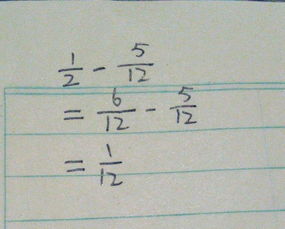 1/2 - 5/12
= 6/12 - 5/12
= 1/12